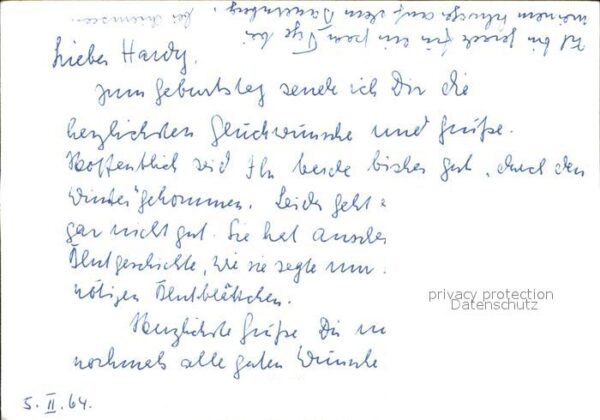 Lieber Hardy,
zum Geburtstag sende ich Dir die
herzlichsten Glückwünsche und Grüße.
Hoffentlich seid Ihr beide bisher gut „durch den
Winter" gekommen. Leider geht
gar nicht gut. Sie hat
Blutgeschichte, wie sie sagte
nötigen Blutblättchen.
Herzlichste Grüße Dir
nochmals alle guten Wünsche
5. II. 64.
Ich bin gerade für ein paar Tage bei
meinem auf dem
privacy protection
Datenschutz